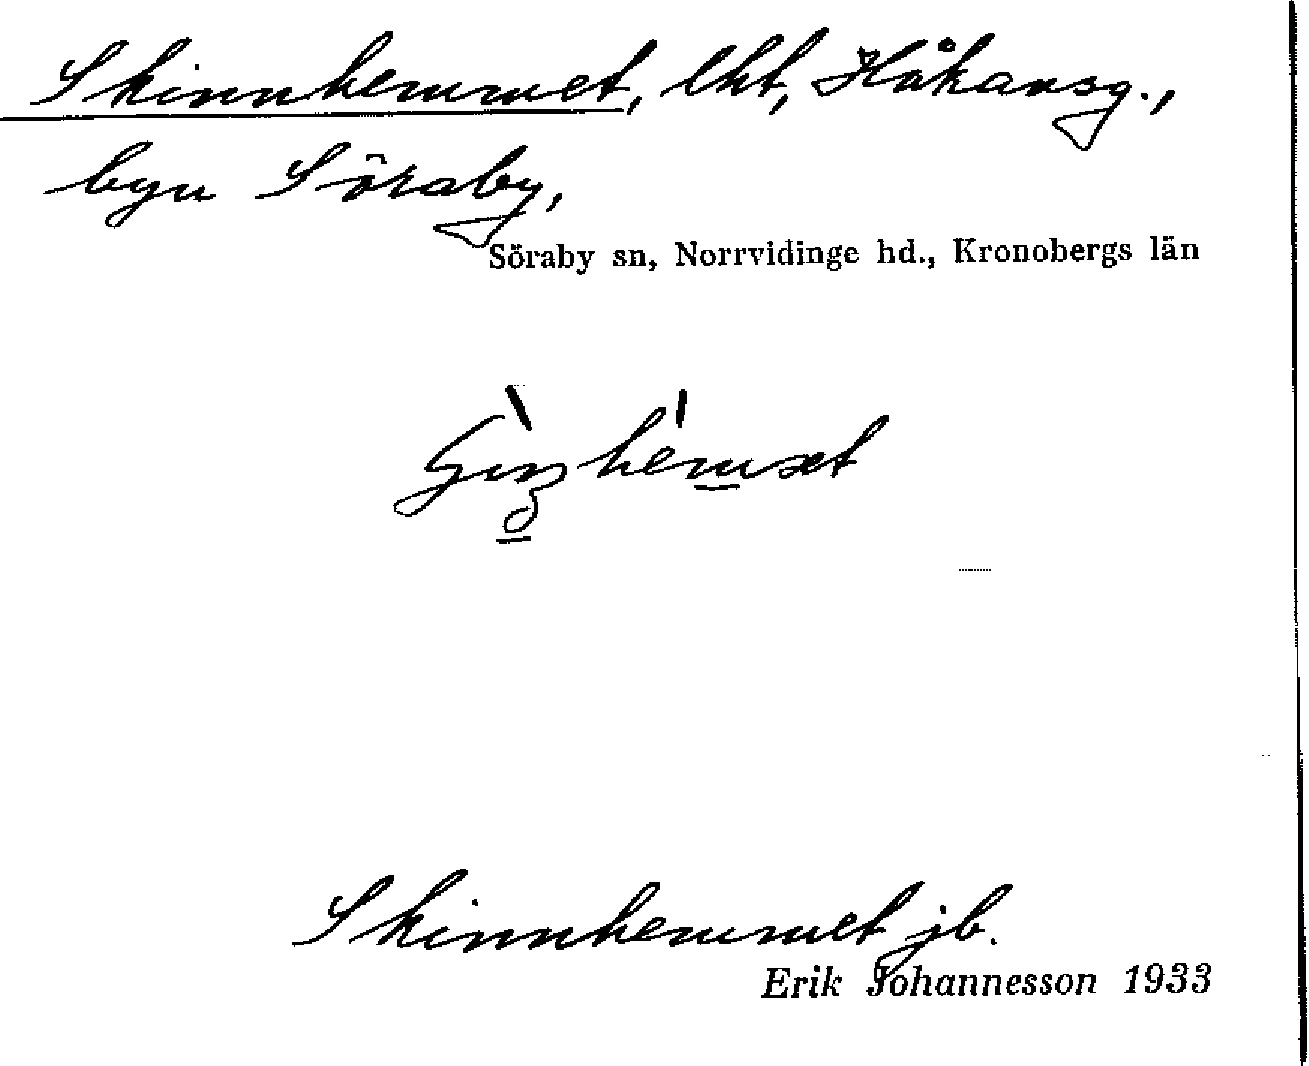 Skinnhemmet, lht, Håkansg.,
byn Söraby,
Söraby sn, Norrvidinge hd., Kronobergs län
Skinnhemmet jb.
Erik Johannesson 1933